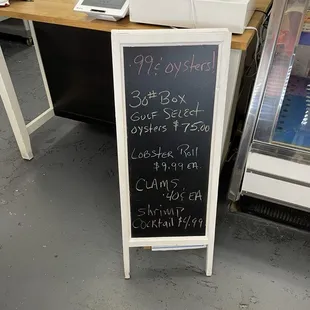 .99¢ oysters!
30# Box
GULF SELECT
oysters $75.00
LOBSTER Roll
$9.99 EA.
CLAMS
.40¢ EA
shrimp
Cocktail $4.99